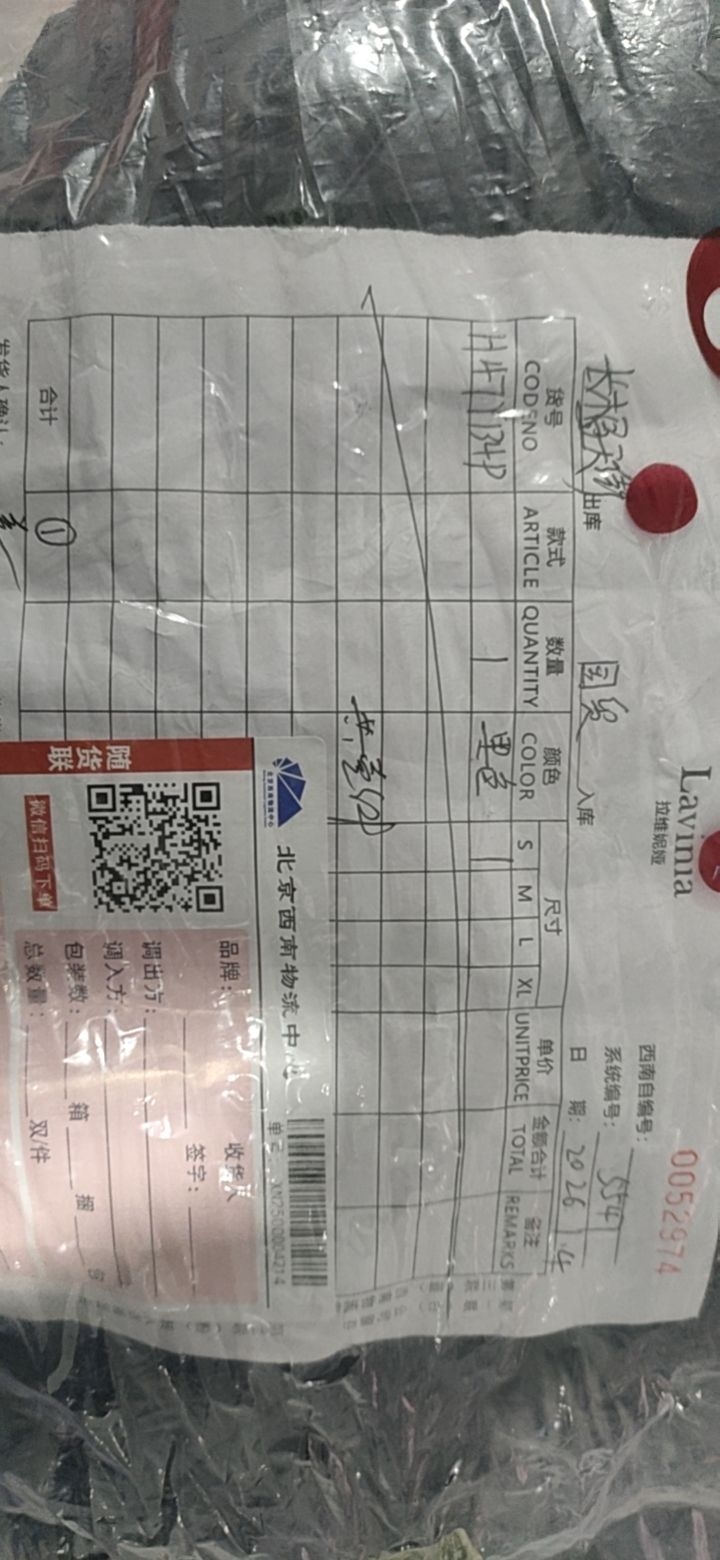 Lavinia
拉维妮娅
0052974
西南自编号：
系统编号： 554
日 期： 2026 1.4
出库 国贸 入库
货号 款式 数量 颜色 尺寸 单价 金额合计 备注
CODE NO ARTICLE QUANTITY COLOR S M L XL UNITPRICE TOTAL REMARKS
H471134P 1 黑色 1
共壹件
合计 ①
北京西南物流中心
XN7500004214
随货联
微信扫码下单
品牌：
调出方：
调入方：
包装数： 箱 捆 包
总数量： 双/件
收货人
签字：